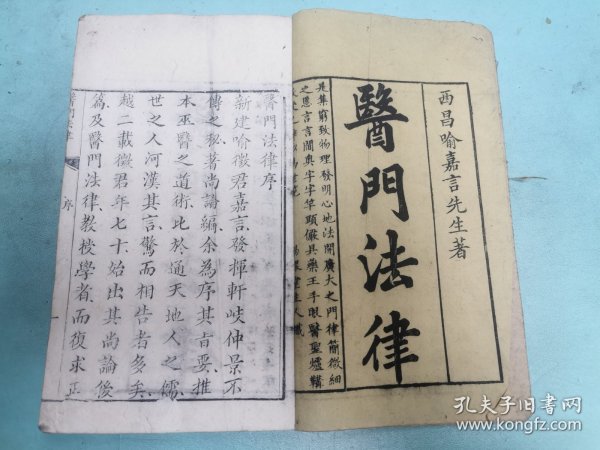 西昌喻嘉言先生著
醫門法律
是葊窮致物理發明心地法開廣大之門律簡微細
之愚言言闡奧字字竿頭儼具藥王手眼醫聖爐鞴
醫門法律序
新建喻徵君嘉言發揮軒岐仲景不
傳之秘著尚論編余為序其旨要推
本巫醫之道術比於通天地人之儒
世之人河漢其言驚而相告者多矣
越二載徵君年七十始出其尚論後
篇及醫門法律教授學者而復求正
醫門法律
序
孔夫子旧书网
www.kongfz.com